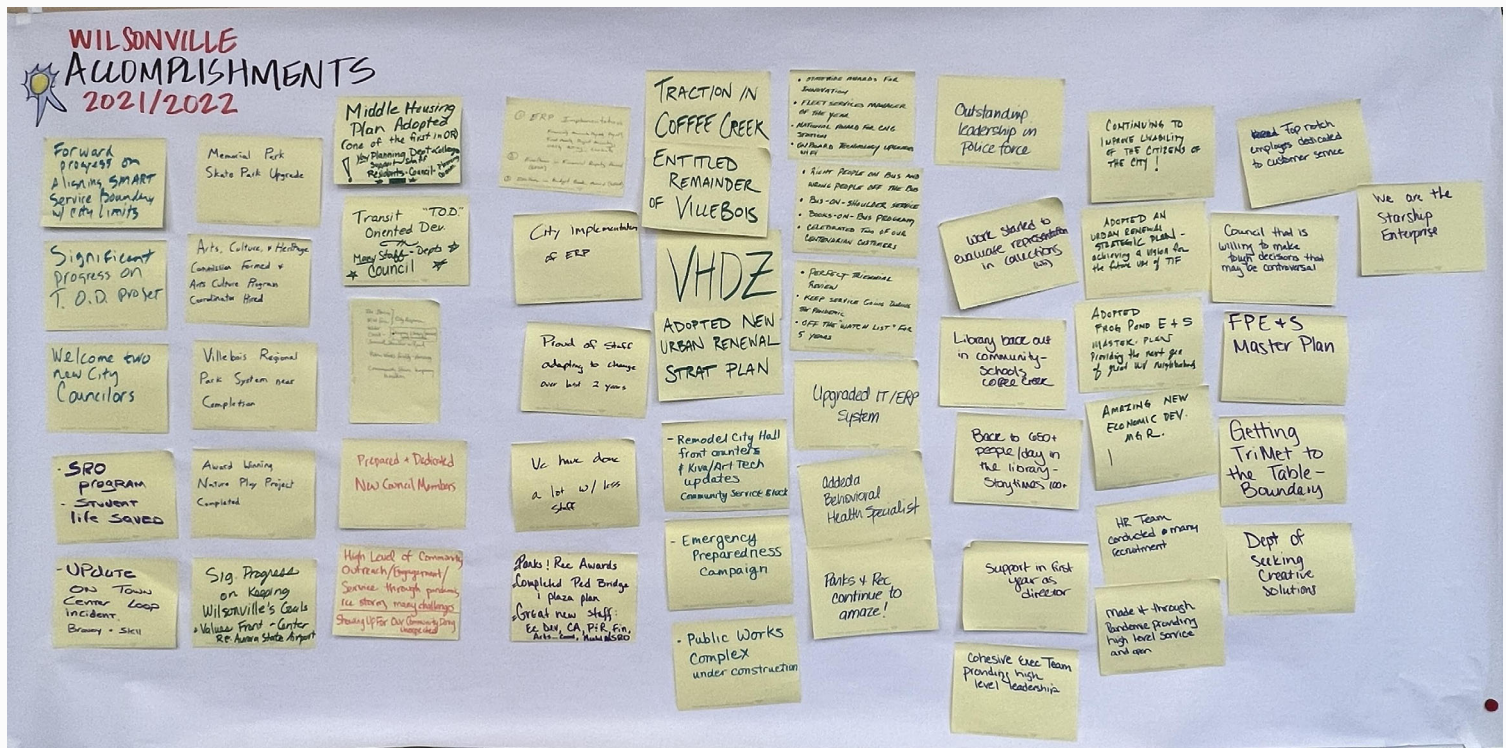 WILSONVILLE
ACCOMPLISHMENTS
2021/2022
Forward
progress on
Aligning SMART
Service Boundary
w/ City Limits
Significant
progress on
T.O.D. project
Welcome two
new City
Councilors
- SRO
program
- Student
life SAVED
- UPDATE
ON TOWN
Center Loop
incident.
Bravery - Skill
Memorial Park
Skate Park Upgrade
Arts, Culture, & Heritage
Commission Formed &
Arts Culture Program
Coordinator Hired
Villebois Regional
Park System near
Completion
Award Winning
Nature Play Project
Completed
Sig. Progress
on Keeping
Wilsonville's Goals
& Values Front - Center
Re: Aurora State Airport
Middle Housing
Plan Adopted
(one of the first in OR)
Yay Planning Dept
Residents - Council
Transit "T.O.D."
Oriented Dev.
Many Staff - Depts
Council
Prepared + Dedicated
New Council Members
High Level of Community
Outreach/Engagement/
Service through pandemic,
ice storm, many challenges
Showing Up For Our Community During
Unexpected
① ERP Implementation
City Implementation
of ERP
Proud of staff
adapting to change
over last 2 years
We have done
a lot w/ less
staff
Parks & Rec Awards
Completed Ped Bridge
& plaza plan
Great new staff:
Ec Dev, CA, P&R, Fin,
TRACTION IN
COFFEE CREEK
ENTITLED
REMAINDER
OF VILLEBOIS
VHDZ
ADOPTED NEW
URBAN RENEWAL
STRAT PLAN
- Remodel City Hall
front counters
& Kiva/Art Tech
updates
Community Service Block
- Emergency
Preparedness
Campaign
- Public Works
Complex
under construction
• STATEWIDE AWARDS FOR
INNOVATION
• FLEET SERVICES MANAGER
OF THE YEAR
• NATIONAL AWARD FOR CNG
STATION
• ONBOARD TECHNOLOGY UPGRADES
WIFI
• RIGHT PEOPLE ON BUS AND
WRONG PEOPLE OFF THE BUS
• BUS-ON-SHOULDER SERVICE
• BOOKS-ON-BUS PROGRAM
• CELEBRATED TWO OF OUR
CENTENARIAN CUSTOMERS
• PERFECT TRIENNIAL
REVIEW
• KEEP SERVICE GOING DURING
THE PANDEMIC
• OFF THE "WATCH LIST" FOR
5 YEARS
Upgraded IT/ERP
System
Added a
Behavioral
Health Specialist
Parks & Rec
continue to
amaze!
Outstanding
leadership in
Police force
Work started to
evaluate representation
in collections
Library back out
in community -
Schools
Coffee Creek
Back to 650+
people/day in
the library -
Storytimes 100+
Support in first
year as
director
Cohesive Exec Team
providing high
level leadership
CONTINUING TO
IMPROVE LIVABILITY
OF THE CITIZENS OF
THE CITY!
ADOPTED AN
URBAN RENEWAL
STRATEGIC PLAN -
achieving a vision for
the future use of TIF
ADOPTED
FROG POND E + S
MASTER PLAN
Providing the next gen
of great WV neighborhood
AMAZING NEW
ECONOMIC DEV.
MGR.
!
HR Team
conducted many
recruitment
Made it through
Pandemic providing
high level service
and open
Top notch
employees dedicated
to customer service
Council that is
willing to make
tough decisions that
may be controversial
FPE + S
Master Plan
Getting
TriMet to
the Table -
Boundary
Dept of
Seeking
Creative
Solutions
We are the
Starship
Enterprise